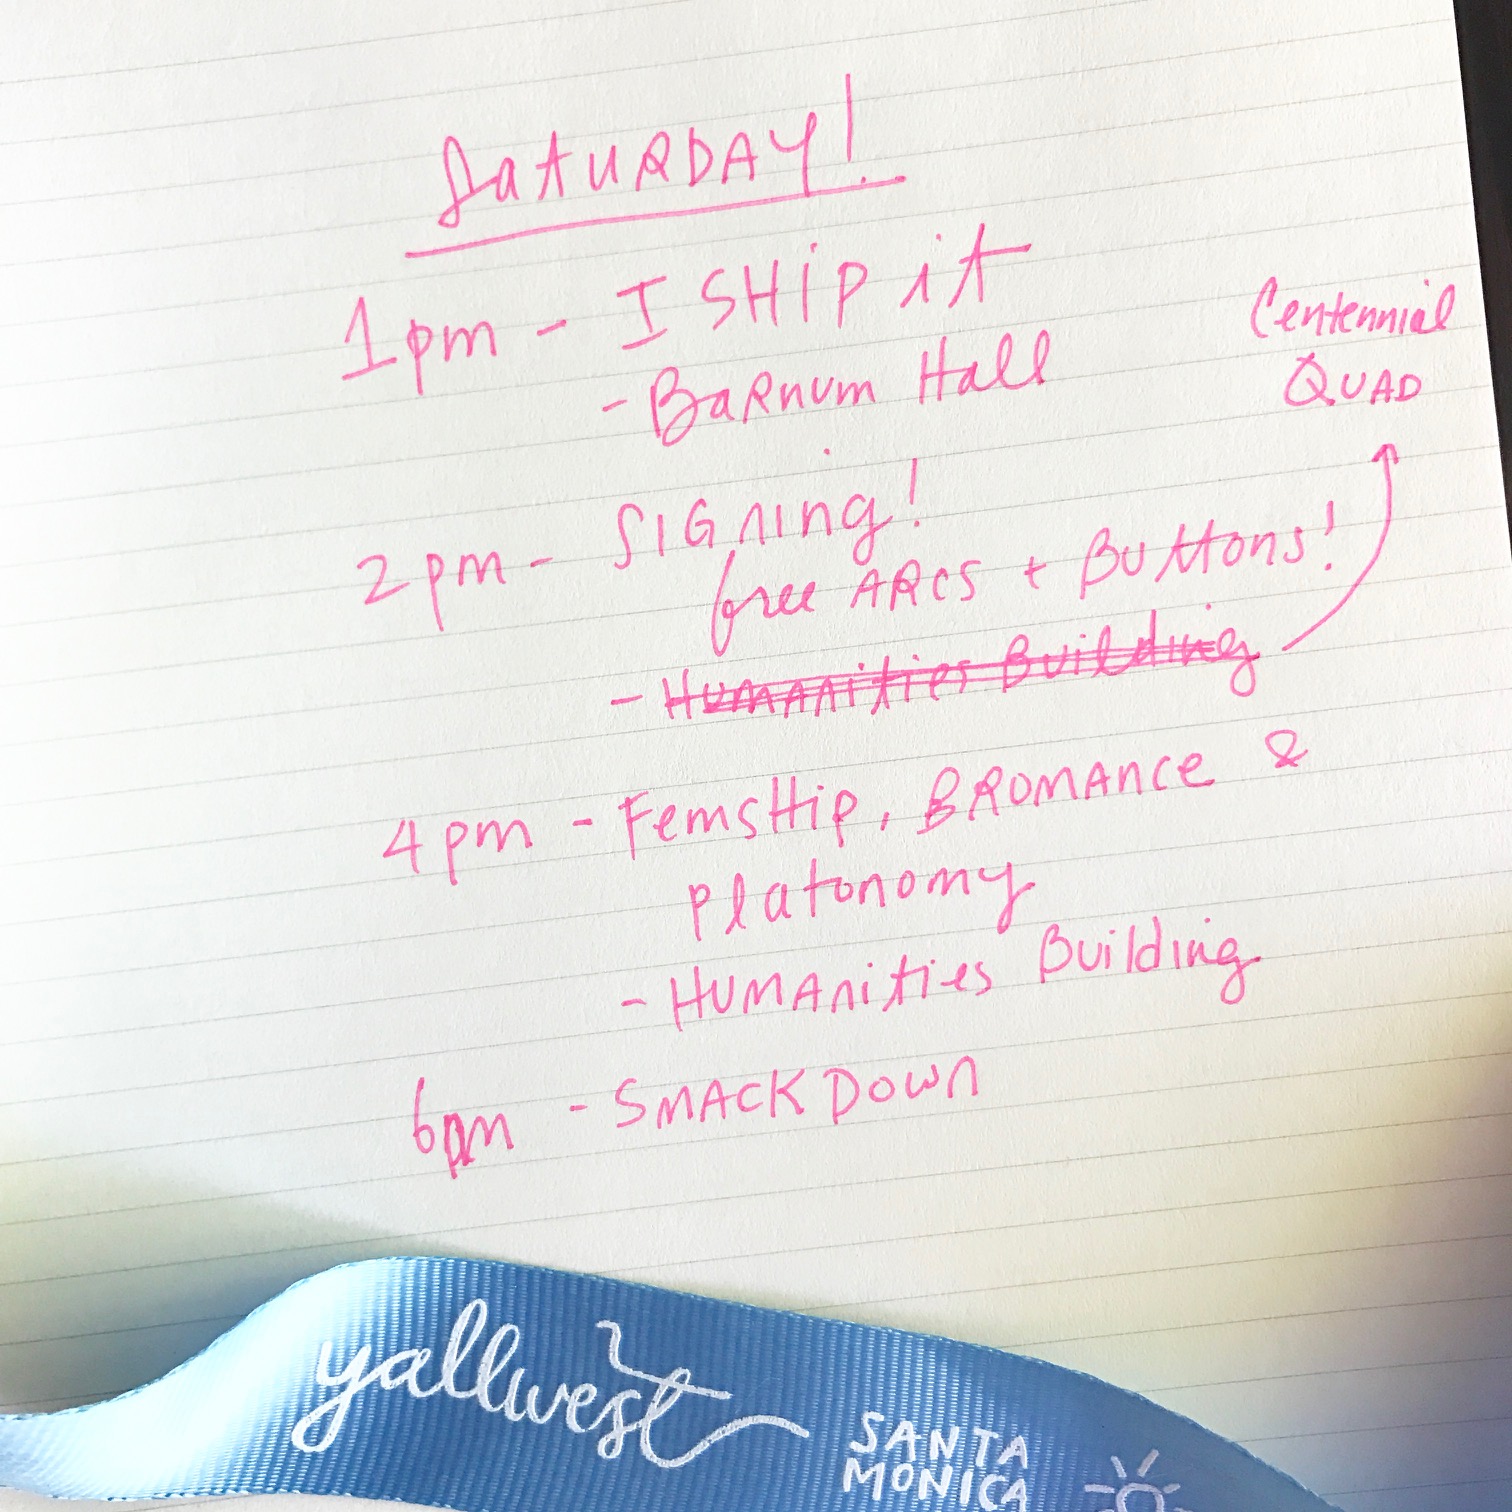 SATURDAY!
1pm - I SHip it
- BARNUM Hall
Centennial
QUAD
2pm - SIGNing!
free ARCS + BUttons!
- HUMANities Building
4pm - FemsHip, BROMANCe &
platonomy
- HUMANities Building
6pm - SMACKDOWN
yallwest
SANTA
MONICA